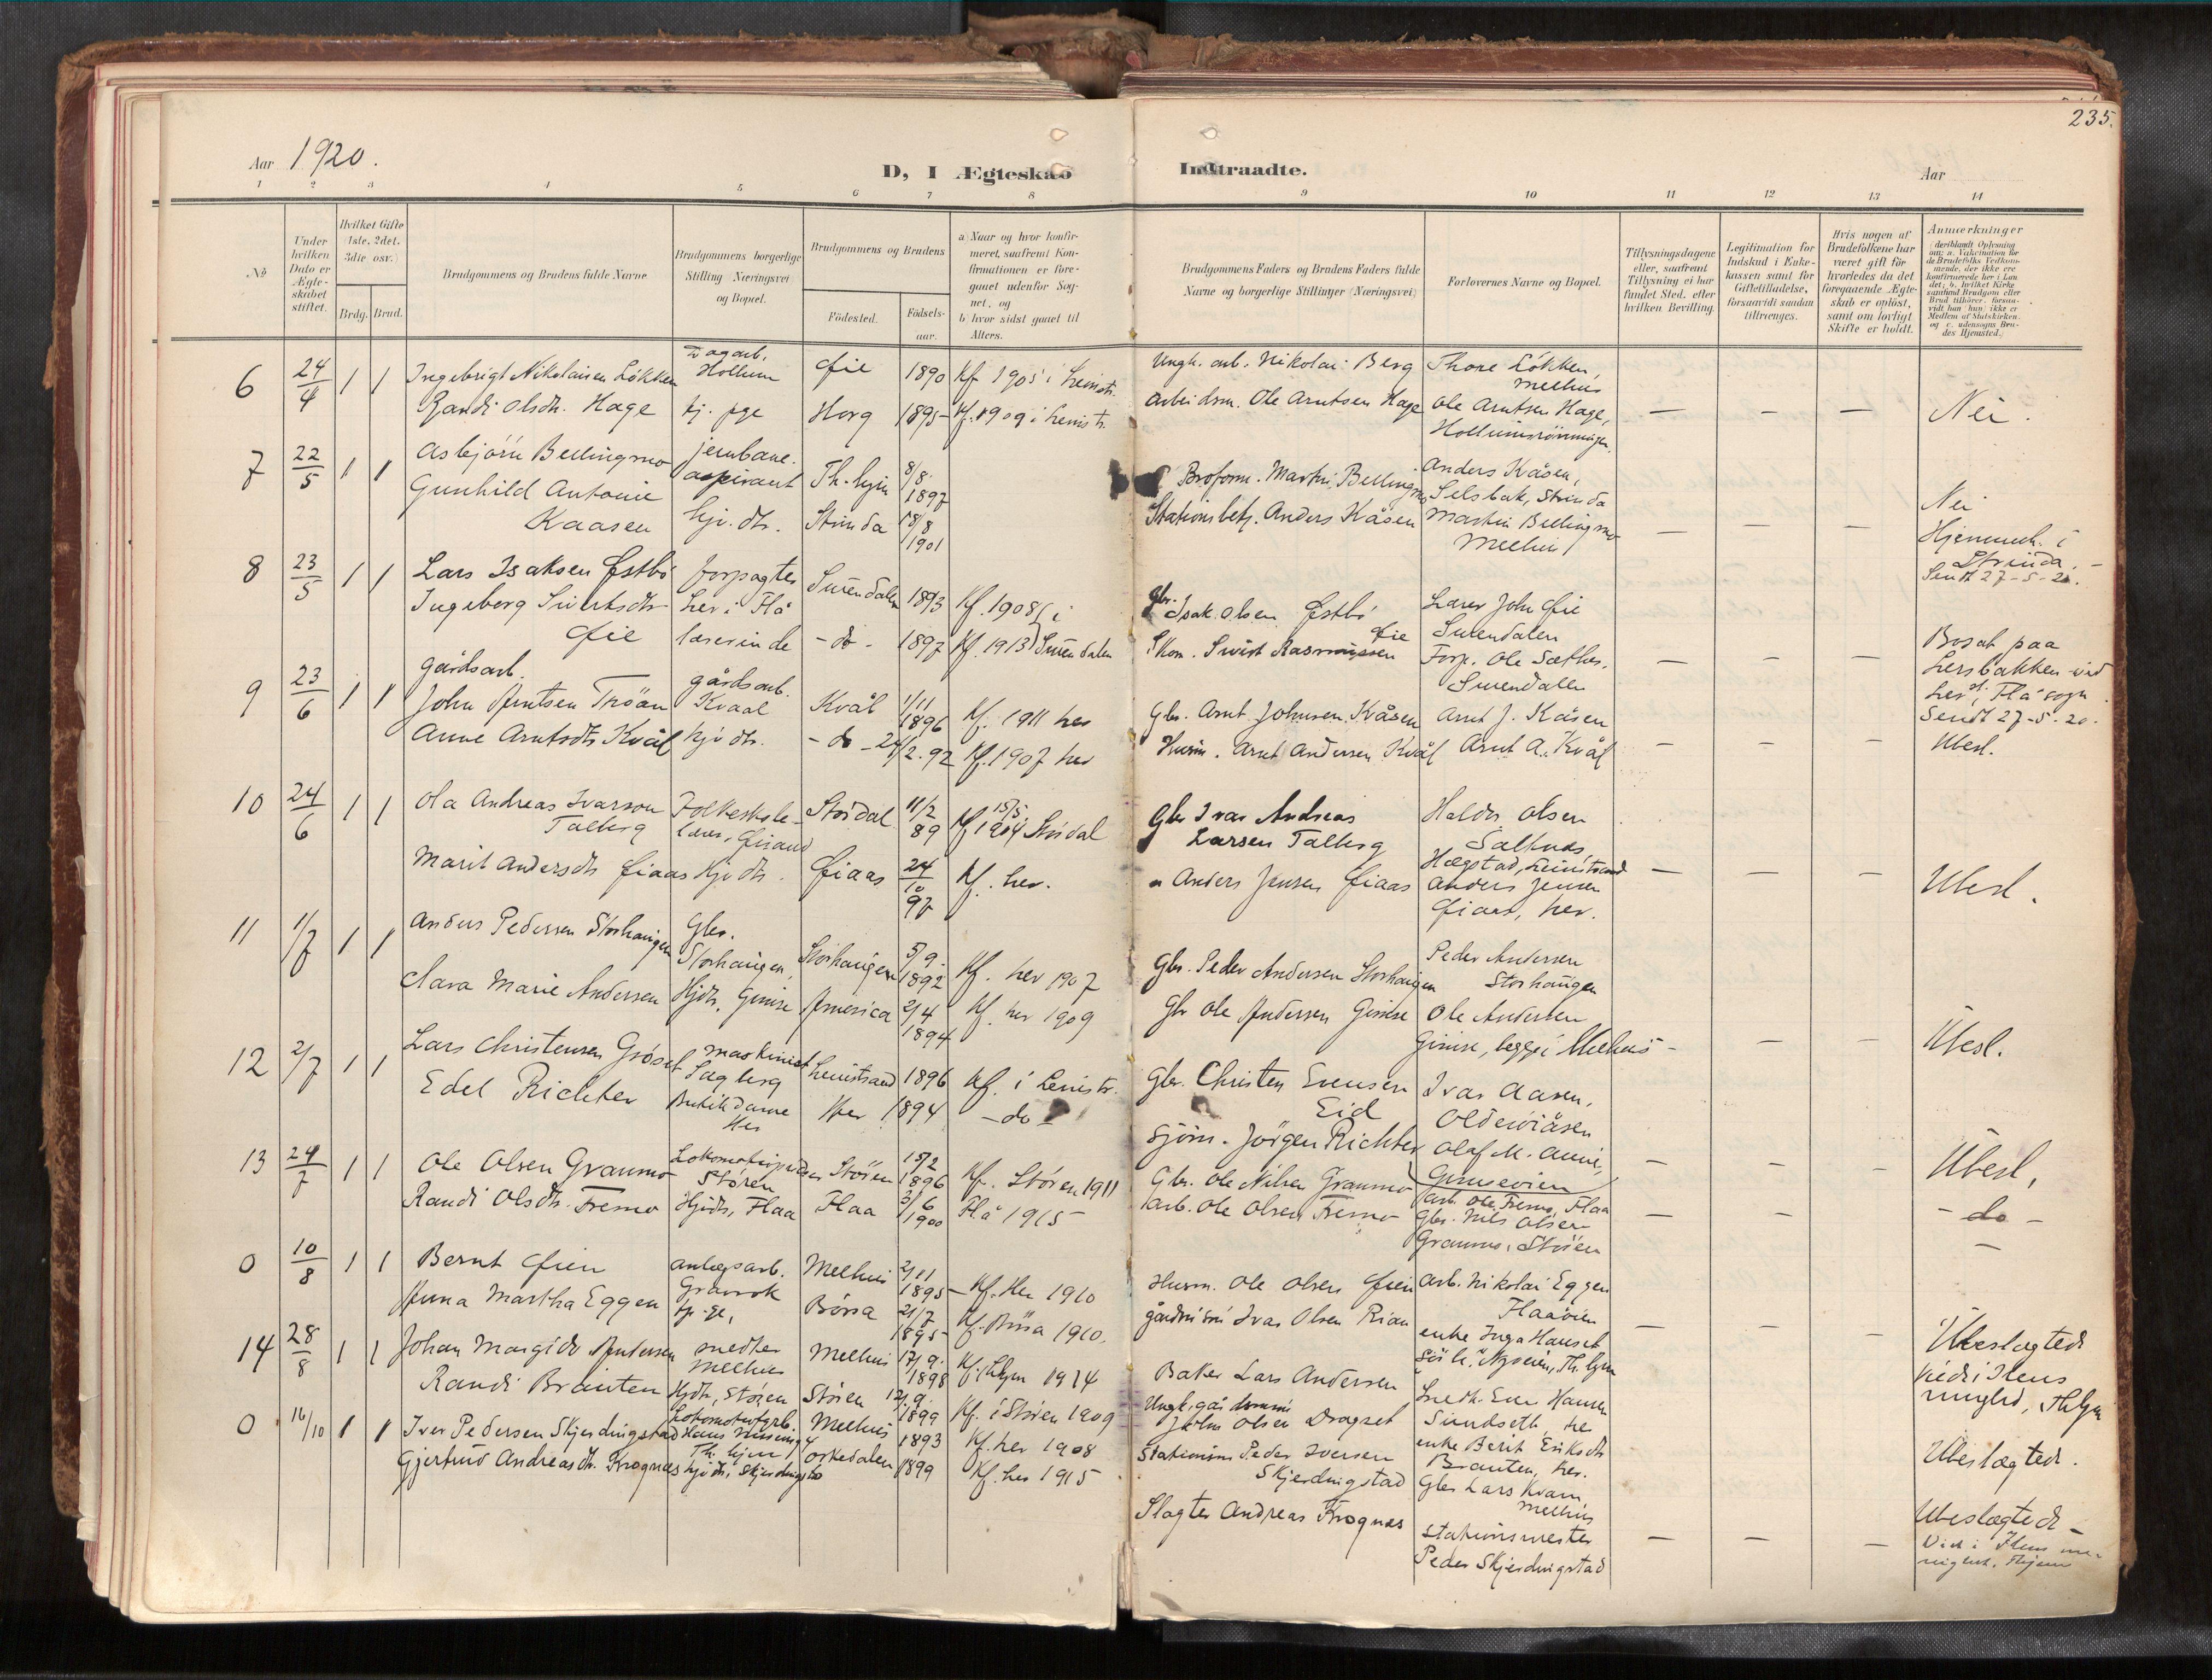 235.
Aar 1920.
D, I Ægteskab Indtraadte.
Aar
1 2 3 4 5 6 7 8 9 10 11 12 13 14
No
Under hvilken Dato er Ægteskabet stiftet.
Hvilket Gifte (1ste, 2det, 3die osv.)
Brdg. Brud.
Brudgommens og Brudens fulde Navne
Brudgommens borgerlige Stilling (Næringsvei) og Bopæl.
Brudgommens og Brudens
Fødested.
Fødselsaar.
a) Naar og hvor konfirmeret, saafremt Konfirmationen er foregaaet udenfor Sognet, og
b) hvor sidst gaaet til Alters.
Brudgommens Faders og Brudens Faders fulde Navne og borgerlige Stillinger (Næringsvei)
Forlovernes Navne og Bopæl.
Tillysningsdagene eller, saafremt Tillysning ei har fundet Sted, efter hvilken Bevilling.
Legitimation for Indskud i Enkekassen samt for Giftetilladelse, forsaavidt saadan tiltrænges.
Hvis nogen af Brudefolkene har været gift før hvorledes da det foregaaende Ægteskab er opløst, samt om lovligt Skifte er holdt.
Anmærkninger
6 24/4 1 1 Ingebrigt Nikolaisen Løkken Dagarb. Hollum Øie 1890 Kf. 1905 i Leinstr. Ungk. arb. Nikolai Berg Thore Løkken, Melhus
Randi Olsdtr. Hage tj. pge Horg 1895 Kf. 1909 i Leinstr. Arbeidsm. Ole Arntsen Hage Ole Arntsen Hage, — — — Nei.
7 22/5 1 1 Asbjörn Bellingmo jernbaneaspirant Th.hjem 8/8 1897 Broform. Martin Bellingmo Anders Kåsen, Selsbak, Strinda
Gunhild Antonie Kaasen hjv. dtr. Strinda 18/8 1901 Stationsbetj. Anders Kåsen Martin Bellingmo Melhus — — — Nei
Hjemmeh. i Strinda.
Sendt 27-5-20.
8 23/5 1 1 Lars Isaksen Østbö forpagter Ler i Flå Surendalen 1893 Kf. 1908 i Gbr. Isak Olsen Østbö Lærer John Øie Surendalen
Ingeborg Sivertsdtr Øie lærerinde - do - 1897 Kf. 1913 Surendalen Skom. Sivert Rasmussen Øie Forp. Ole Sæther, Surendalen — — — Bosat paa Lersbakken ved Ler st. Flå sogn
Sendt 27-5-20.
9 23/6 1 1 gårdsarb. John Arntsen Tröan gårdsarb. Kvaal Kvål 1/11 1896 Kf. 1911 her Gbr. Arnt Johnsen Kvåsen Arnt J. Kåsen
Anne Arntsdtr Kvål hjv dtr. - do - 24/2.92 Kf. 1907 her Husm. Arnt Andersen Kvål Arnt A. Kvål — — — Ubesl.
10 24/6 1 1 Ola Andreas Ivarson Talberg Folkeskolelærer, Stordal 11/2 89 Kf 15/5 1904 Stordal Gbr Ivar Andreas Larsen Talberg Haldor Olsen Saltnes Hægstad, Leinstrand
Marit Andersdtr Øiaas Hjv dtr. Øiaas 24/10 97 Kf. her. " Anders Jensen Øiaas Anders Jensen Øiaas, her. — — — Ubesl.
11 1/7 1 1 Anders Pedersen Storhaugen Gbr. Storhaugen, Storhaugen 5/9. 1892 Kf. her 1907 Gbr. Peder Andersen Storhaugen Peder Andersen Storhaugen
Clara Marie Andersen Hjdtr. Gimse America 2/4 1894 Kf. her 1909 Gbr Ole Andersen Gimse Ole Andersen Gimse, begge i Melhus — — — Ubesl.
12 2/7 1 1 Lars Christensen Gröset maskinist Sagberg Leinstrand 1896 Kf. i Leinstr. Gbr. Christen Evensen Eid Ivar Aasen,
Edel Richter Butikdame Her Her 1894 - do - Sjöm. Jörgen Richter Olaf M. — — — Ubesl.
13 24/7 1 1 Ole Olsen Granmo Stören Stören 15/2 1896 Kf. Stören 1911 Gbr. Ole Nilsen Granmo arb. Ole Fremo, Flaa
Randi Olsdtr. Fremo Hjdtr, Flaa Flaa 3/6 1900 Flå 1915 Arb. Ole Olsen Fremo Gbr. Nils Olsen Granmo, Stören — — — - do -
0 10/8 1 1 Bernt Øien anlægsarb. Melhus 2/11 1895 Kf. Her 1910 Husm. Ole Olsen Øien arb. Nikolai Eggen Flaaöien
Anna Martha Eggen Börsa 21/7 1895 Kf. Börsa 1910. Ivar Olsen Rian enke Inga — — — Ubeslægtede
Viede i Ilens menighed, Th.hjem
14 28/8 1 1 Johan Margido Andersen smedter Melhus Melhus 17/9. 1898 Kf. Th.hjem 1914 Baker Lars Andersen Hansen Sundseth, her
Randi Brauten Hjdtr, Stören Stören 12/9 1899 Kf. i Stören 1909 John Olsen Dragset enke Berit Eriksdtr Brauten, her. Ubeslægtede.
0 16/10 1 1 Iver Pedersen Skjerdingstad Th.hjem Melhus 1893 Kf. her 1908 Stationsm Peder Iversen Skjerdingstad Gbr Lars Kvam Melhus
Gjertrud Andreasdtr. Krognæs hjvdtr, Skjerdingstad Orkedalen 1899 Kf. her 1915 Slagter Andreas Krognæs Stationsmester Peder Skjerdingstad — — — Ubeslægtede -
Viet i Ilens menighed, Th.hjem